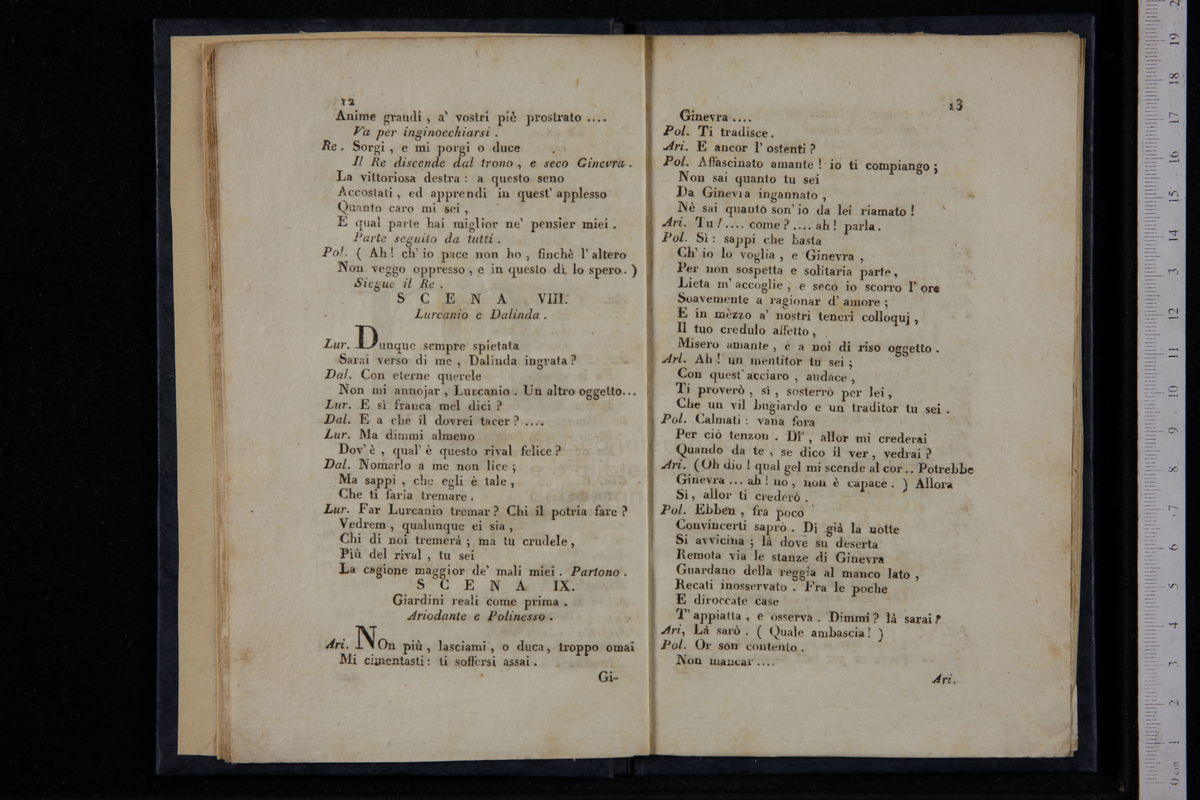 12
Anime grandi , a' vostri piè prostrato ....
Va per inginocchiarsi .
Re . Sorgi , e mi porgi o duce
Il Re discende dal trono , e seco Ginevra .
La vittoriosa destra : a questo seno
Accostati , ed apprendi in quest' applesso
Quanto caro mi sei ,
E qual parte hai miglior ne' pensier miei .
Parte seguito da tutti .
Pol. ( Ah ! ch' io pace non ho , finchè l' altero
Non veggo oppresso , e in questo dì lo spero . )
Siegue il Re .
SCENA VIII.
Lurcanio e Dalinda .
Lur. Dunque sempre spietata
Sarai verso di me , Dalinda ingrata ?
Dal. Con eterne querele
Non mi annojar , Lurcanio . Un altro oggetto...
Lur. E sì franca mel dici ?
Dal. E a che il dovrei tacer ? ....
Lur. Ma dimmi almeno
Dov' è , qual' è questo rival felice ?
Dal. Nomarlo a me non lice ;
Ma sappi , che egli è tale ,
Che ti faria tremare .
Lur. Far Lurcanio tremar ? Chi il potria fare ?
Vedrem , qualunque ei sia ,
Chi di noi tremerà ; ma tu crudele ,
Più del rival , tu sei
La cagione maggior de' mali miei . Partono .
SCENA IX.
Giardini reali come prima .
Ariodante e Polinesso .
Ari. NOn più , lasciami , o duca , troppo omai
Mi cimentasti : ti soffersi assai .
Gi-
13
Ginevra ....
Pol. Ti tradisce .
Ari. E ancor l' ostenti ?
Pol. Affascinato amante ! io ti compiango ;
Non sai quanto tu sei
Da Ginevia ingannato ,
Nè sai quanto son' io da lei riamato !
Ari. Tu ! .... come ? .... ah ! parla .
Pol. Sì : sappi che basta
Ch' io lo voglia , e Ginevra ,
Per non sospetta e solitaria parte ,
Lieta m' accoglie , e seco io scorro l' ore
Soavemente a ragionar d' amore ;
E in mèzzo a' nostri teneri colloquj ,
Il tuo credulo affetto ,
Misero amante , è a noi di riso oggetto .
Ari. Ah ! un mentitor tu sei ;
Con quest' acciaro , audace ,
Ti proverò , sì , sosterrò per lei ,
Che un vil bugiardo e un traditor tu sei .
Pol. Calmati : vana fora
Per ciò tenzon . Dì , allor mi crederai
Quando da te , se dico il ver , vedrai ?
Ari. ( Oh dio ! qual gel mi scende al cor .. Potrebbe
Ginevra ... ah ! no , non è capace . ) Allora
Sì , allor ti crederò .
Pol. Ebben , fra poco
Convincerti saprò . Di già la notte
Si avvicina ; là dove su deserta
Remota via le stanze di Ginevra
Guardano della reggia al manco lato ,
Recati inosservato . Fra le poche
E diroccate case
T' appiatta , e osserva . Dimmi ? là sarai ?
Ari, Là sarò . ( Quale ambascia ! )
Pol. Or son contento .
Non mancar ....
Ari.
0 cm 1 2 3 4 5 6 7 8 9 10 11 12 13 14 15 16 17 18 19